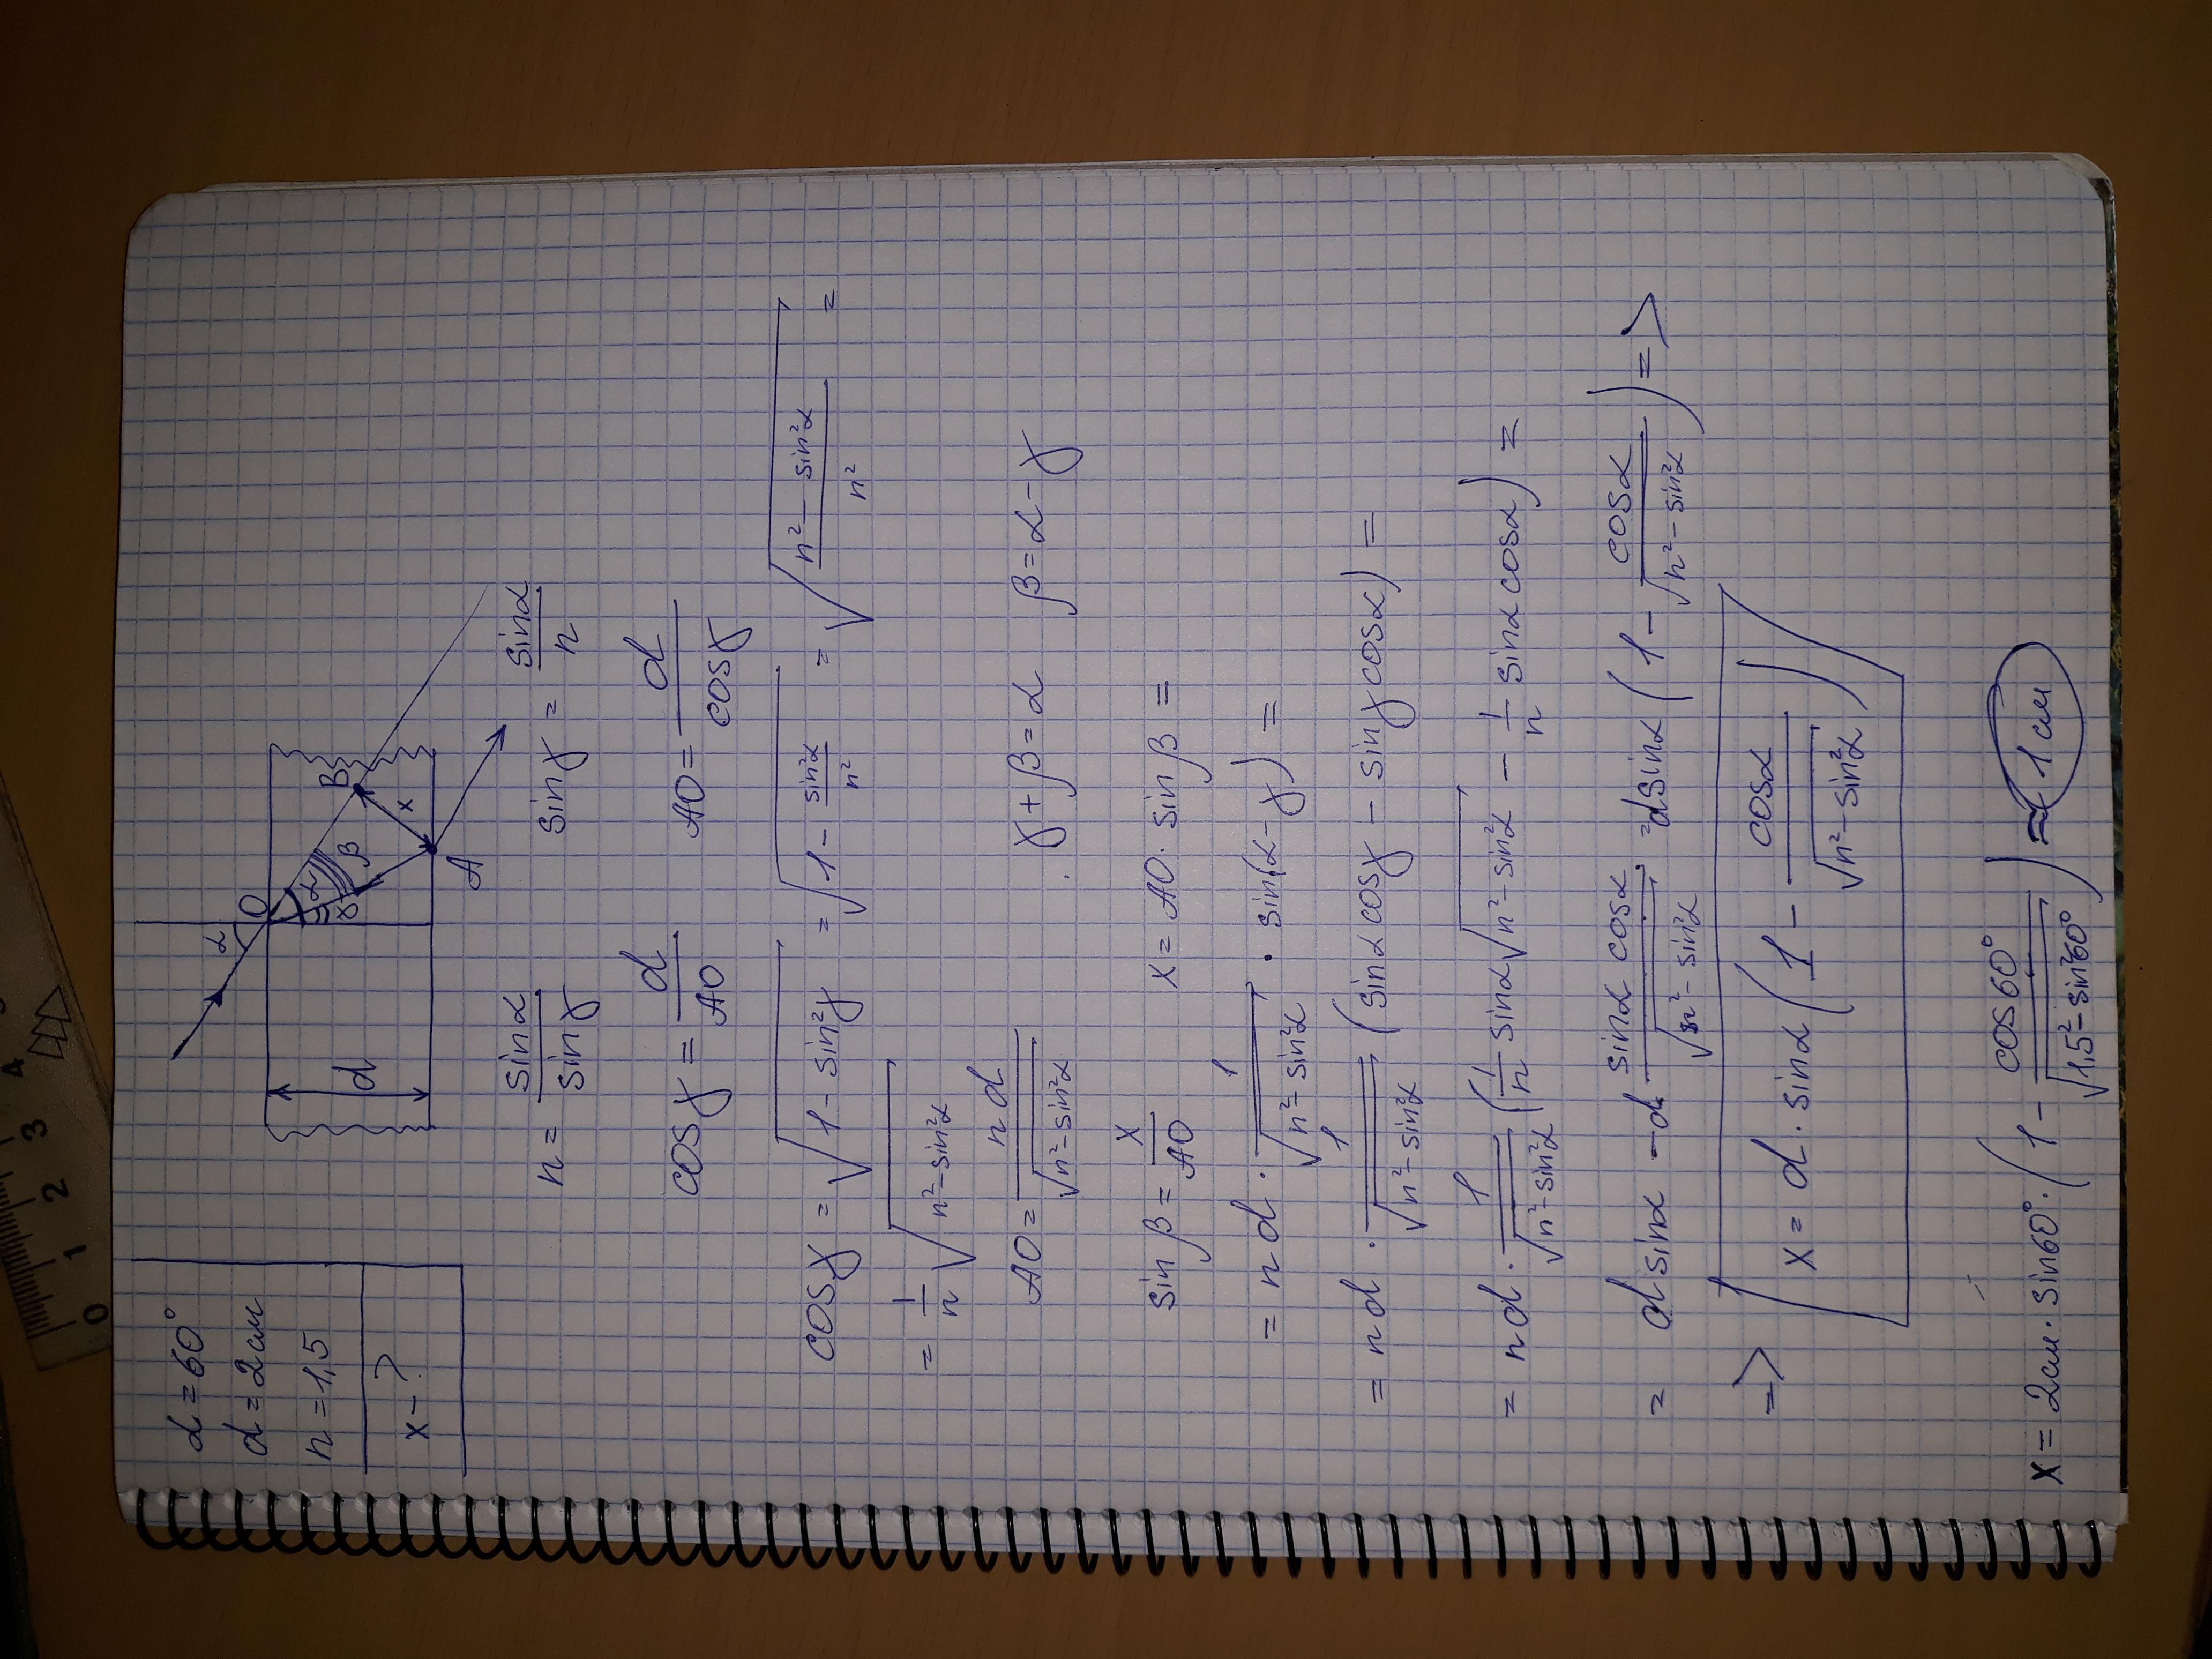 α = 60°
d = 2 см
n = 1,5
x - ?
α
O
d
α
γ
β
B
x
A
n = sinα/sinγ sinγ = sinα/n
cosγ = d/AO AO = d/cosγ
cosγ = √(1 - sin²γ) = √(1 - sin²α/n²) = √((n² - sin²α)/n²) =
= 1/n √(n² - sin²α)
AO = nd/√(n² - sin²α) . γ + β = α β = α - γ
sin β = x/AO x = AO · sin β =
= nd · 1/√(n² - sin²α) · sin(α - γ) =
= nd · 1/√(n² - sin²α) (sinα cosγ - sinγ cosα) =
= nd · 1/√(n² - sin²α) (1/n sinα √(n² - sin²α) - 1/n sinα cosα) =
= d sinα - d · sinα cosα/√(n² - sin²α) = d sinα (1 - cosα/√(n² - sin²α)) =>
=> x = d · sinα (1 - cosα/√(n² - sin²α))
x = 2 см · sin60° · (1 - cos60°/√(1,5² - sin²60°)) ≈ 1 см
0 1 2 3 4